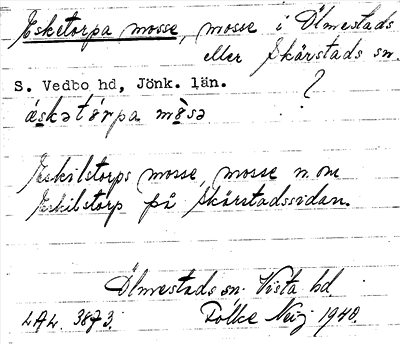 Esketorpa mosse, mosse i Ölmestads
eller Skärstads sn.
S. Vedbo hd, Jönk. län. ?
æ̀skətórpa mósə
Eskilstorps mosse, mosse n om
Eskilstorp på Skärstadssidan.
Ölmestads sn. Vista hd.
LAL. 3873. Folke 1940.